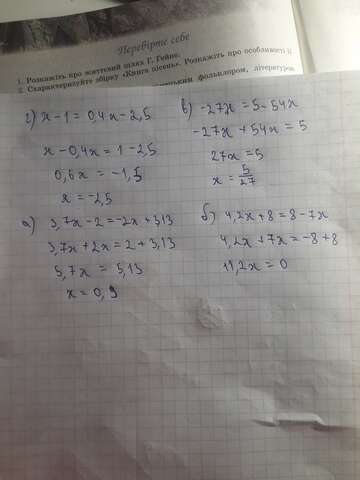 Перевірте себе
1. Розкажіть про життєвий шлях Г. Гейне.
2. Схарактеризуйте збірку «Книга пісень». Розкажіть про особливості її
фольклором, літературою
г) x - 1 = 0,4x - 2,5
x - 0,4x = 1 - 2,5
0,6x = -1,5
x = -2,5
в) -27x = 5 - 54x
-27x + 54x = 5
27x = 5
x = 5/27
а) 3,7x - 2 = -2x + 3,13
3,7x + 2x = 2 + 3,13
5,7x = 5,13
x = 0,9
б) 4,2x + 8 = 8 - 7x
4,2x + 7x = -8 + 8
11,2x = 0